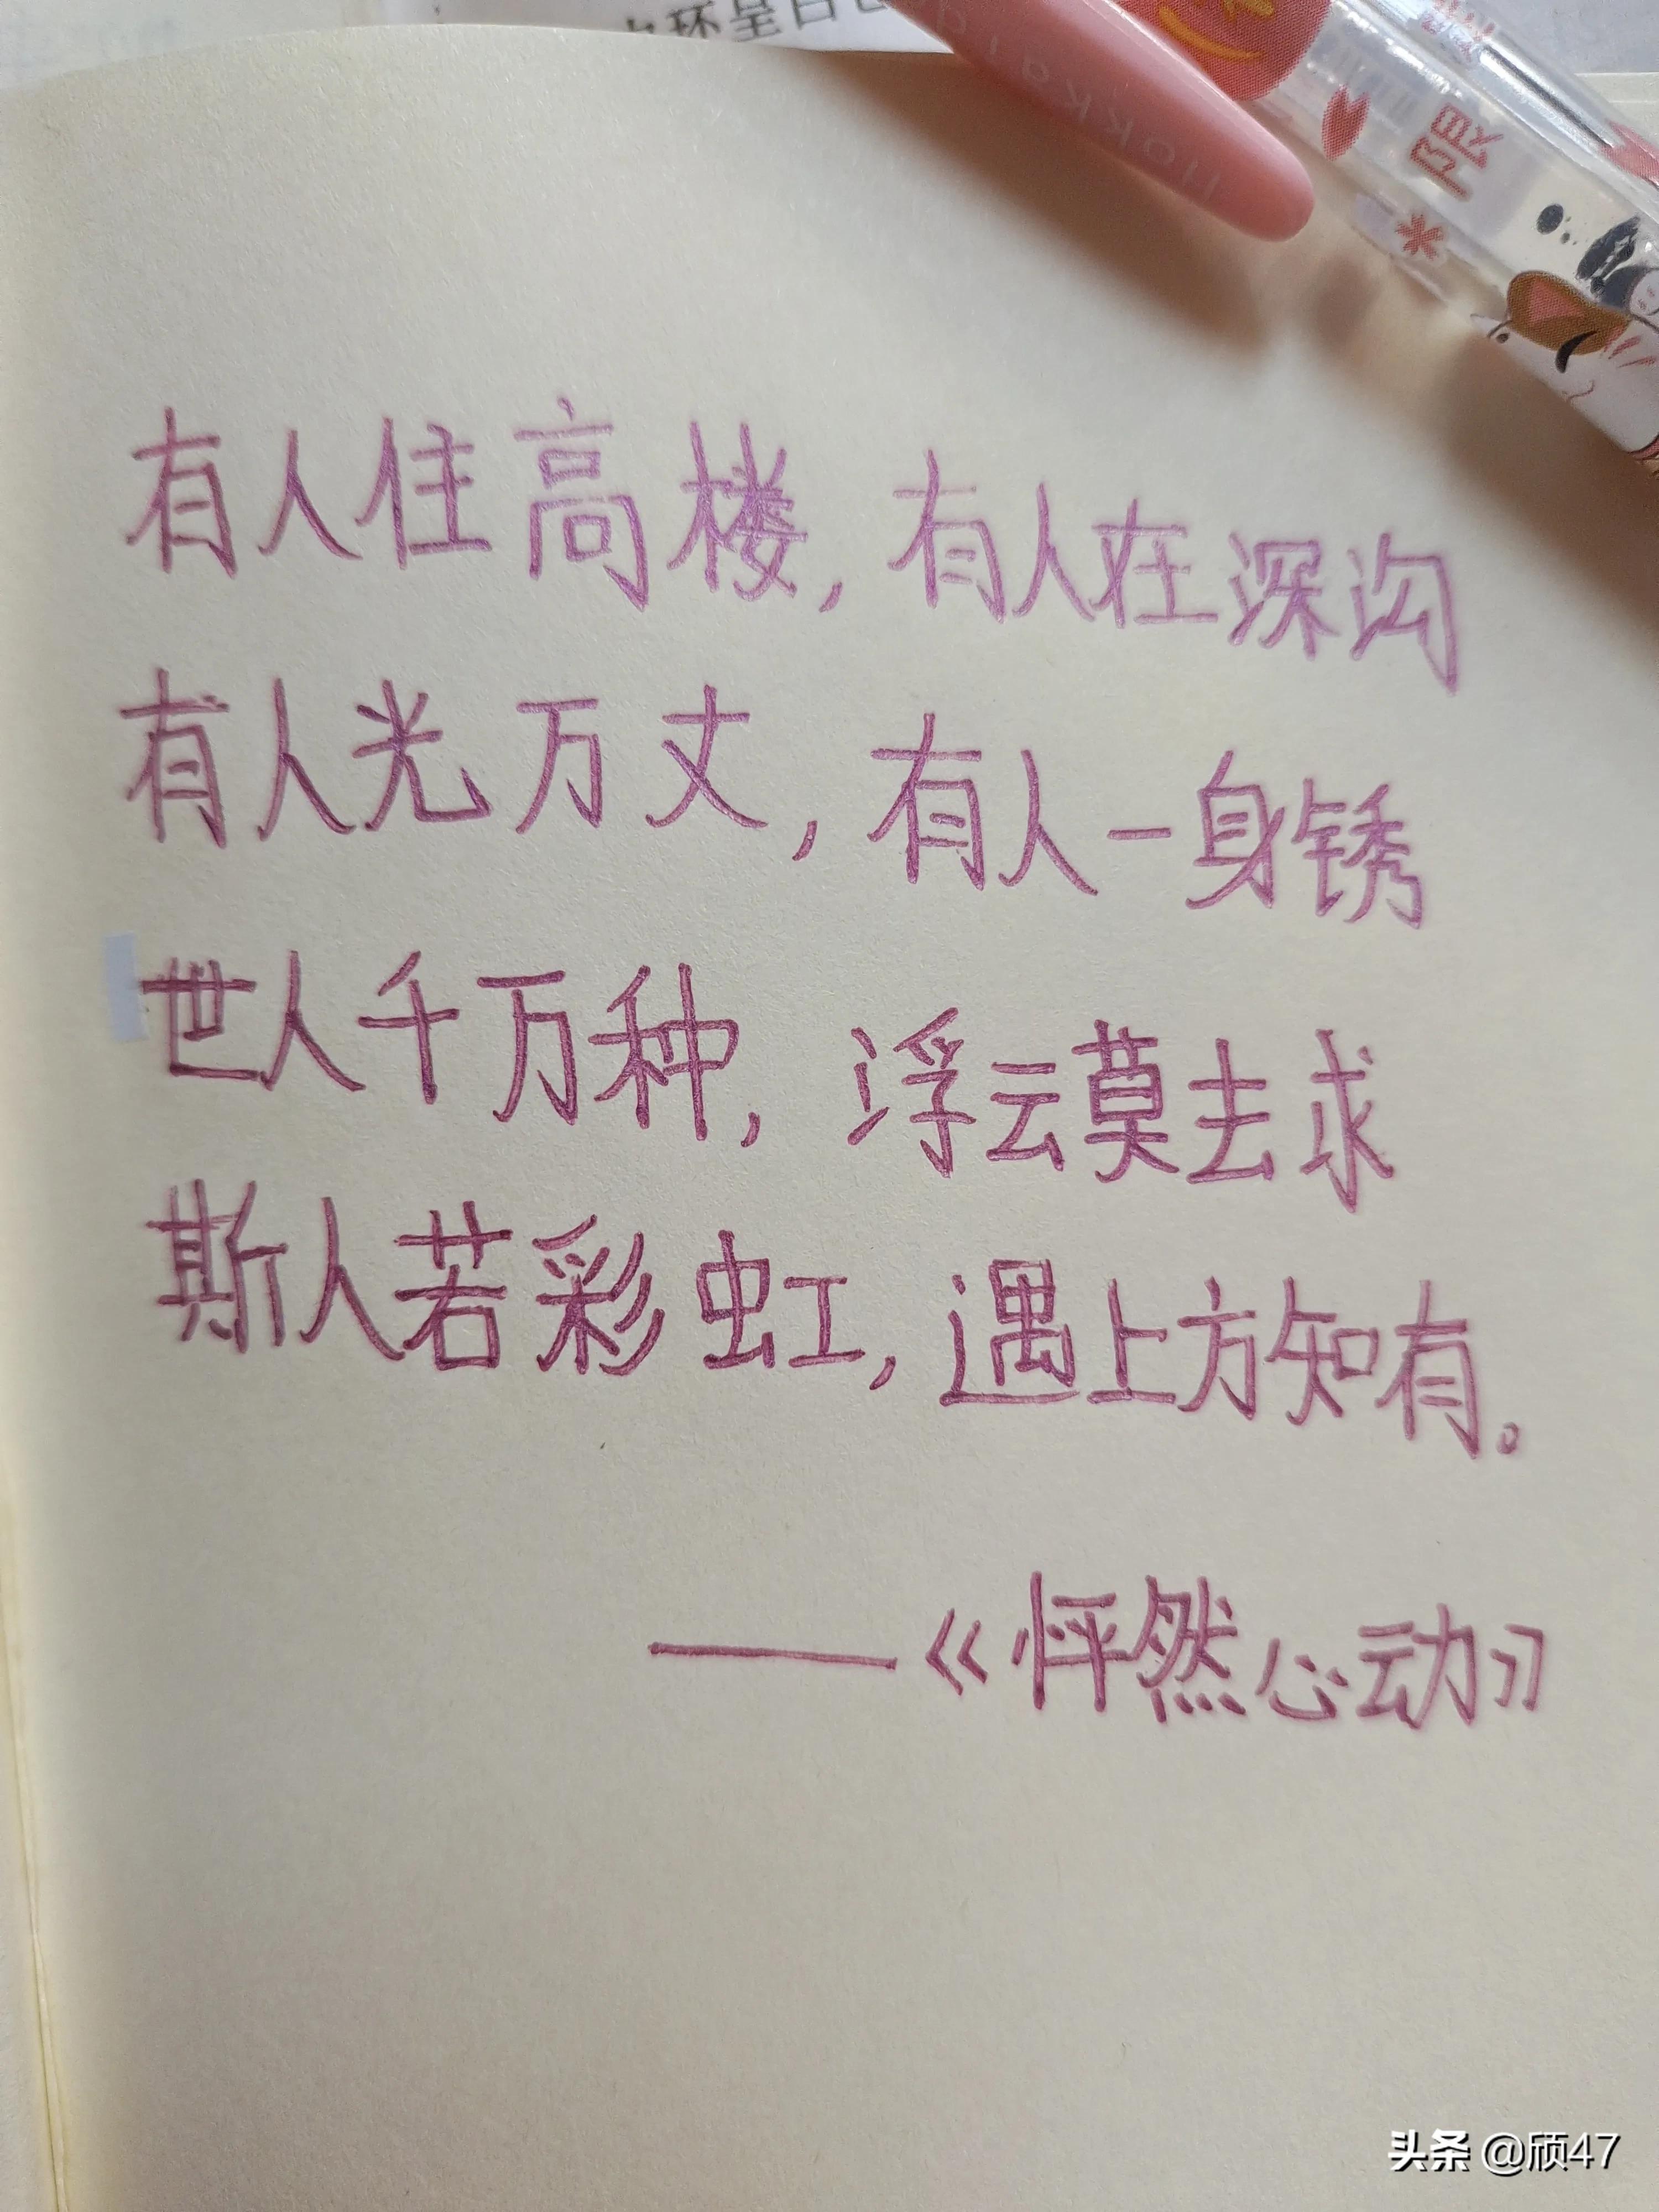 环呈白
Hokkaid
限
有人住高楼,有人在深沟
有人光万丈,有人一身锈
世人千万种,浮云莫去求
斯人若彩虹,遇上方知有。
——《怦然心动》
头条 @颀47